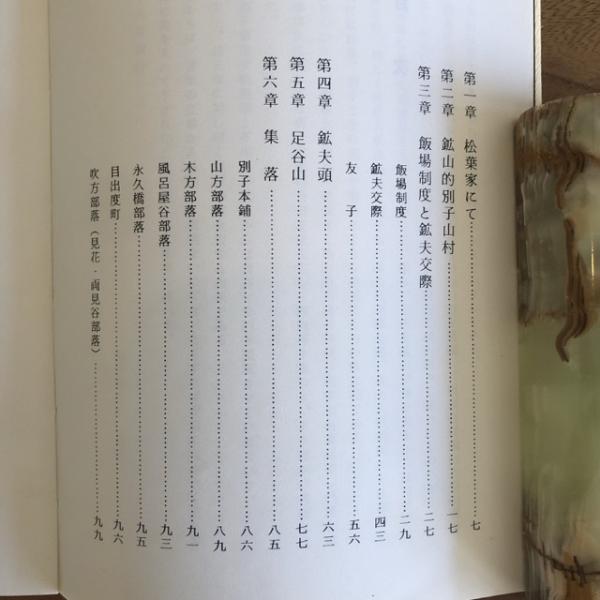 第一章　松葉家にて……七
第二章　鉱山的別子山村……一七
第三章　飯場制度と鉱夫交際……二七
飯場制度……二九
鉱夫交際……四三
友　子……五六
第四章　鉱夫頭……六三
第五章　足谷山……七七
第六章　集　落……八五
別子本鋪……八六
山方部落……八九
木方部落……九一
風呂屋谷部落……九三
永久橋部落……九五
目出度町……九六
吹方部落（見花・両見谷部落）……九九